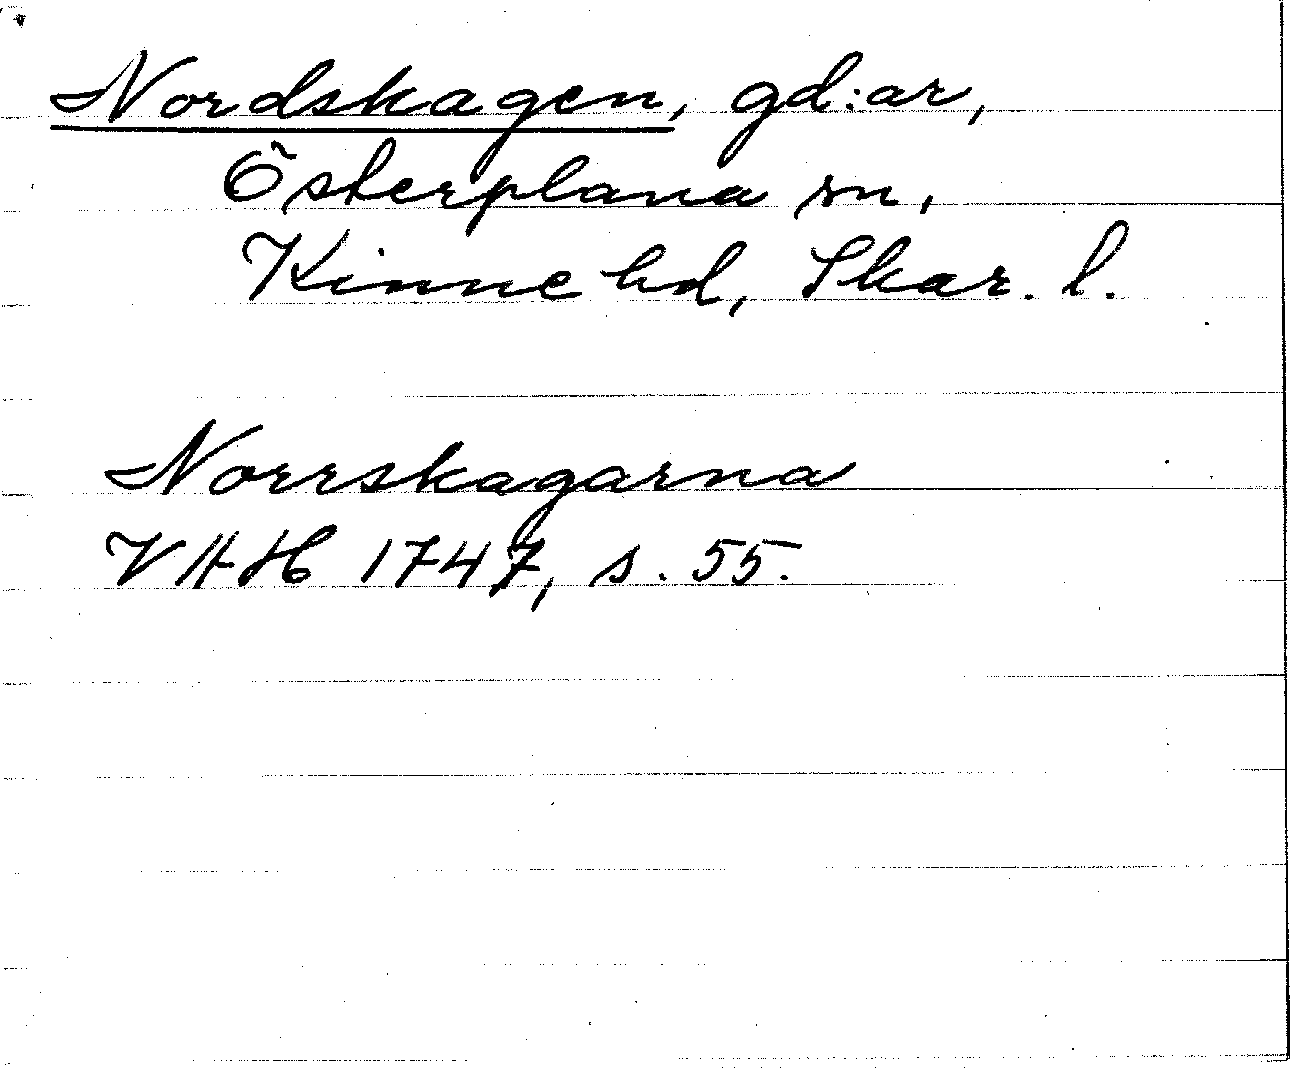 Nordskagen, gd:ar,
Österplana sn,
Kinne hd, Skar. l.
Norrskagarna
VAH 1747, s. 55.